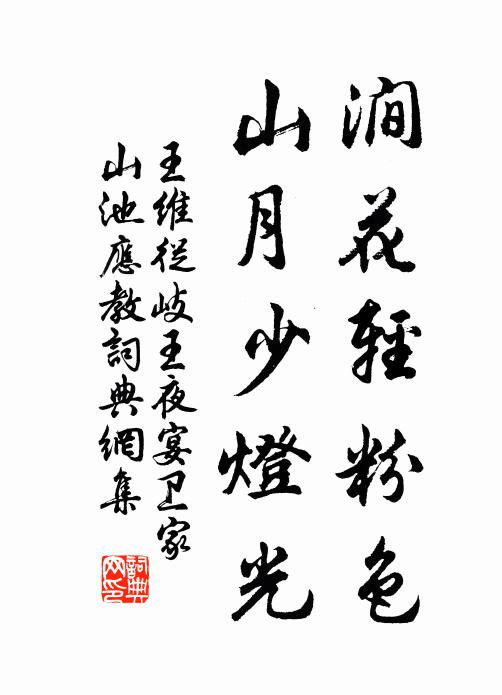 澗花輕粉色
山月少燈光
王維從岐王夜宴卫家
山池應教詞典網集
詞典
网印